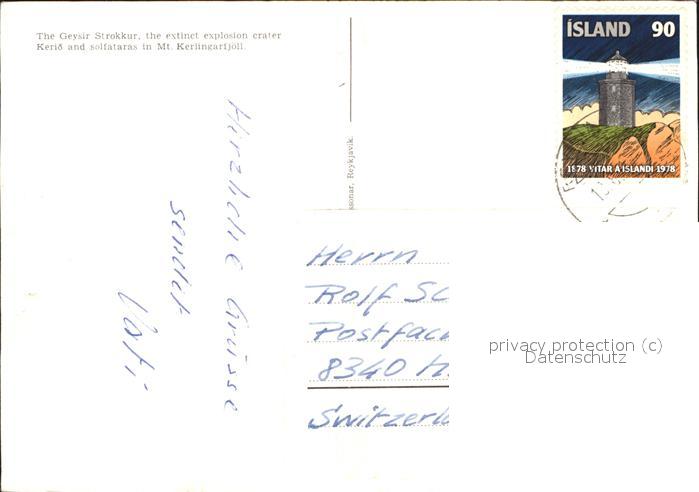 The Geysir Strokkur, the extinct explosion crater
Kerið and solfataras in Mt. Kerlingarfjöll.
ÍSLAND 90
1878 VITAR Á ÍSLANDI 1978
Herzliche Grüsse
sendet
Vati
ssonar, Reykjavík.
Herrn
Rolf Sc
Postfac
8340 H
Switzerl
privacy protection (c)
Datenschutz